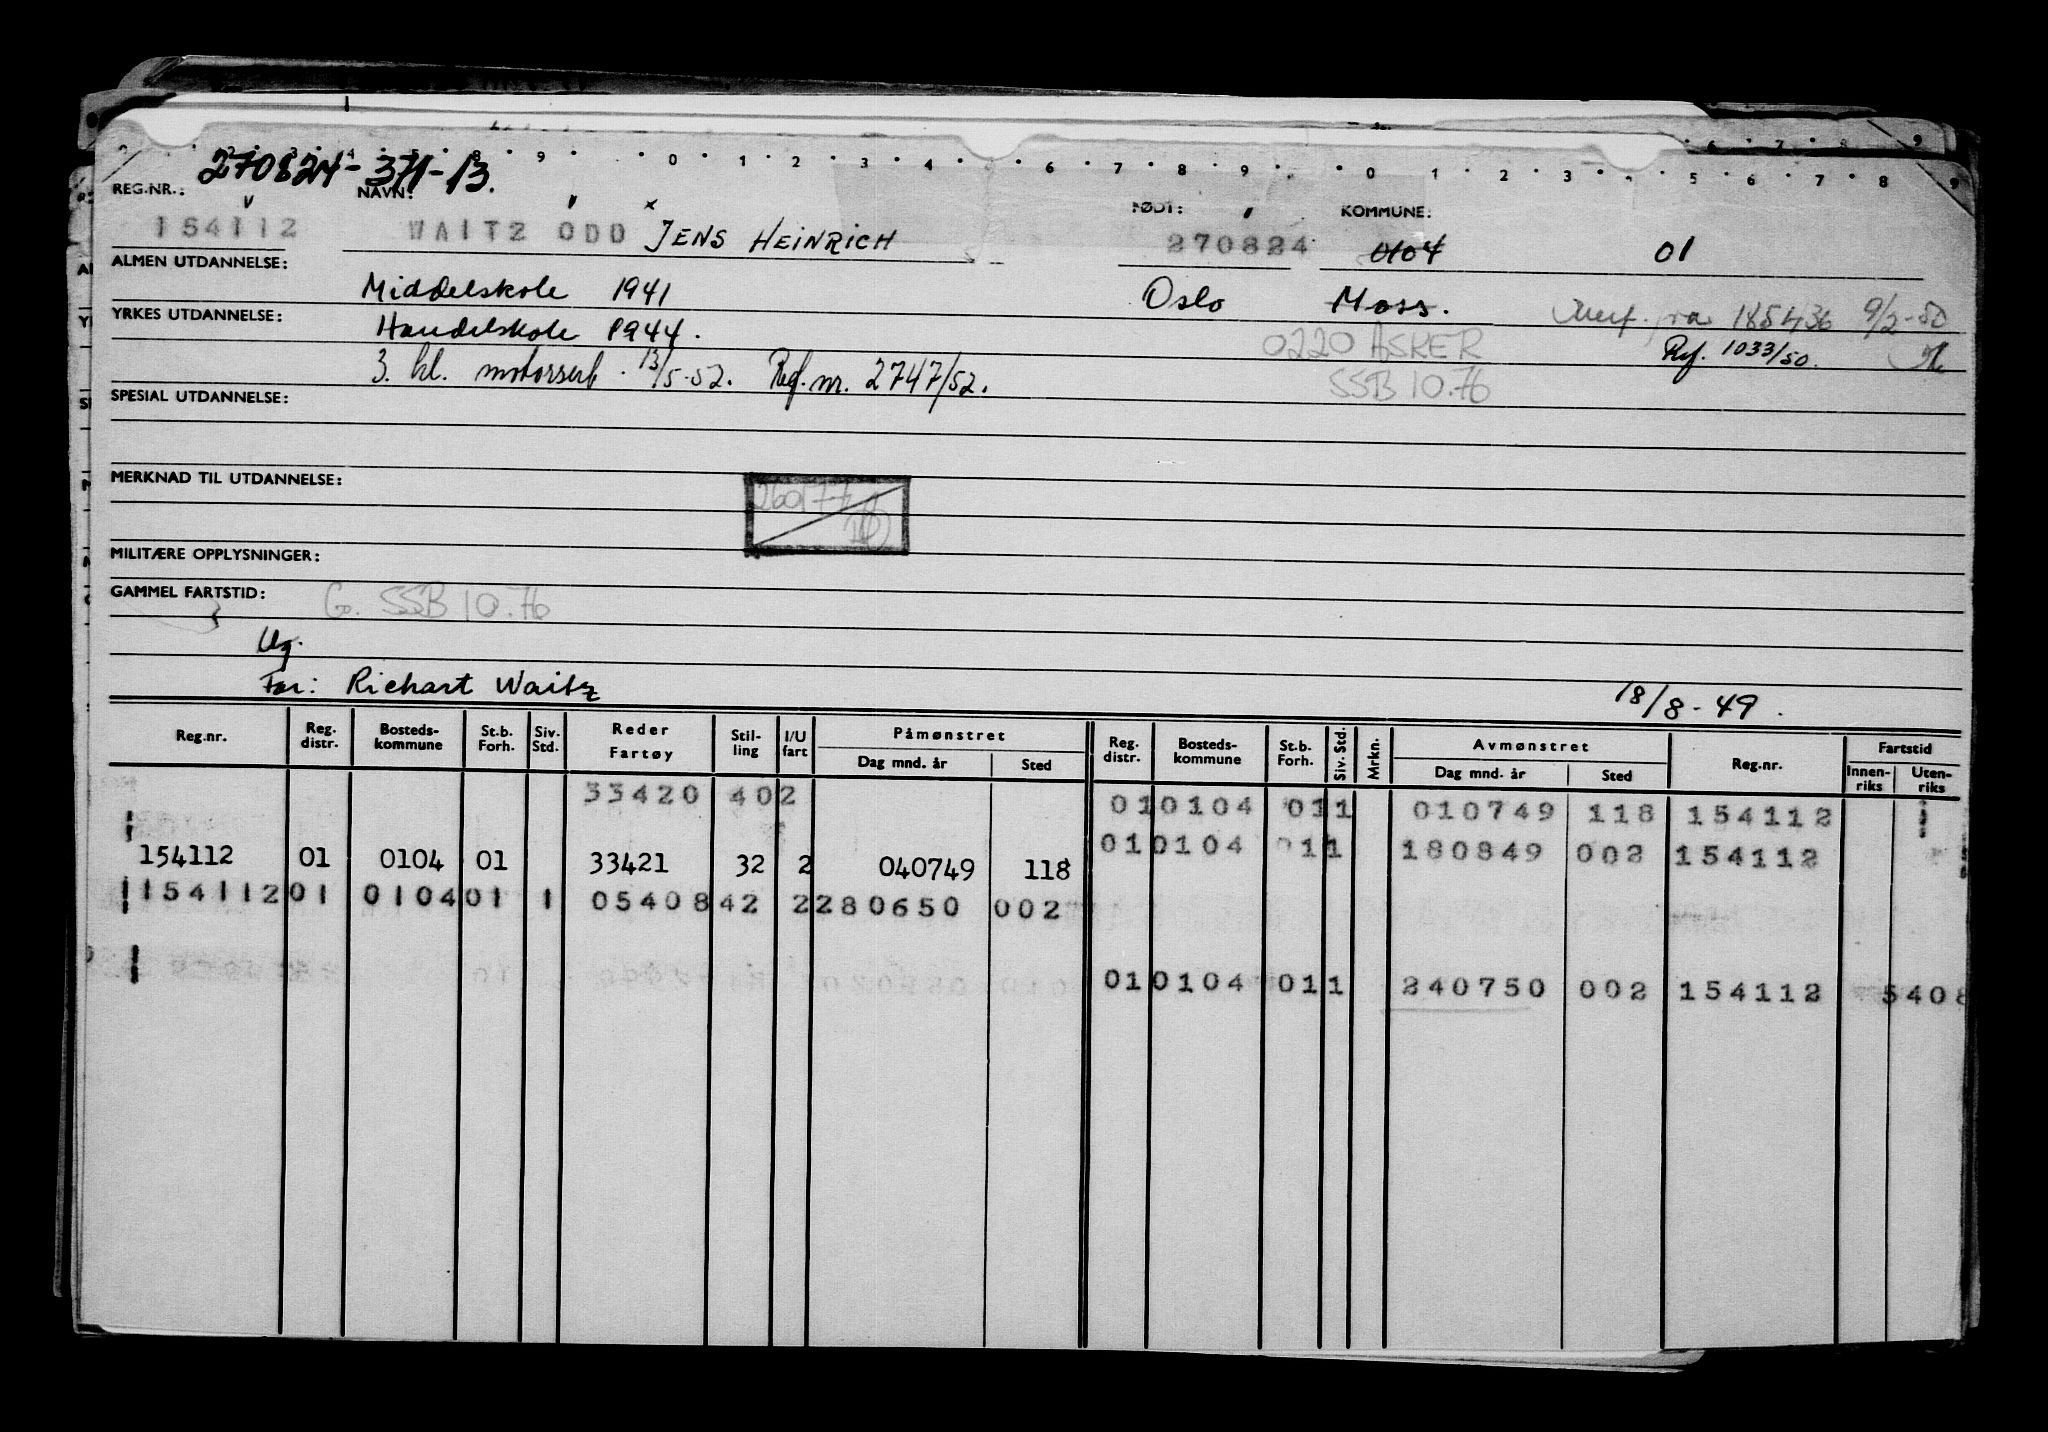 270824-371-13.
REG.NR.: NAVN: FØDT: KOMMUNE:
154112 WAITZ ODD JENS HEINRICH 270824 0104 01
ALMEN UTDANNELSE: Middelskole 1941 Oslo Moss. Overf. fra 185436 9/2-50
YRKES UTDANNELSE: Handelskole 1944. 0220 ASKER Ref. 1033/50.
3. kl. motorsert. 13/5-52. Ref. nr. 2747/52. SSB 10.76
SPESIAL UTDANNELSE:
MERKNAD TIL UTDANNELSE:
260177
MILITÆRE OPPLYSNINGER:
GAMMEL FARTSTID: G. SSB 10.76
Ug.
Far: Richart Waitz 18/8-49.
Reg.nr. Reg. distr. Bosteds-kommune St.b. Forh. Siv. Std. Reder Fartøy Stil-ling I/U fart Påmønstret Dag mnd. år Sted Reg. distr. Bosteds-kommune St.b. Forh. Siv. Std. Mrkn. Avmønstret Dag mnd. år Sted Reg.nr. Fartstid Innen-riks Uten-riks
33420 40 2 01 0104 01 1 010749 118 154112
154112 01 0104 01 33421 32 2 040749 118 01 0104 01 1 180849 002 154112
154112 01 0104 01 1 05408 42 2 280650 002
01 0104 01 1 240750 002 154112 5408